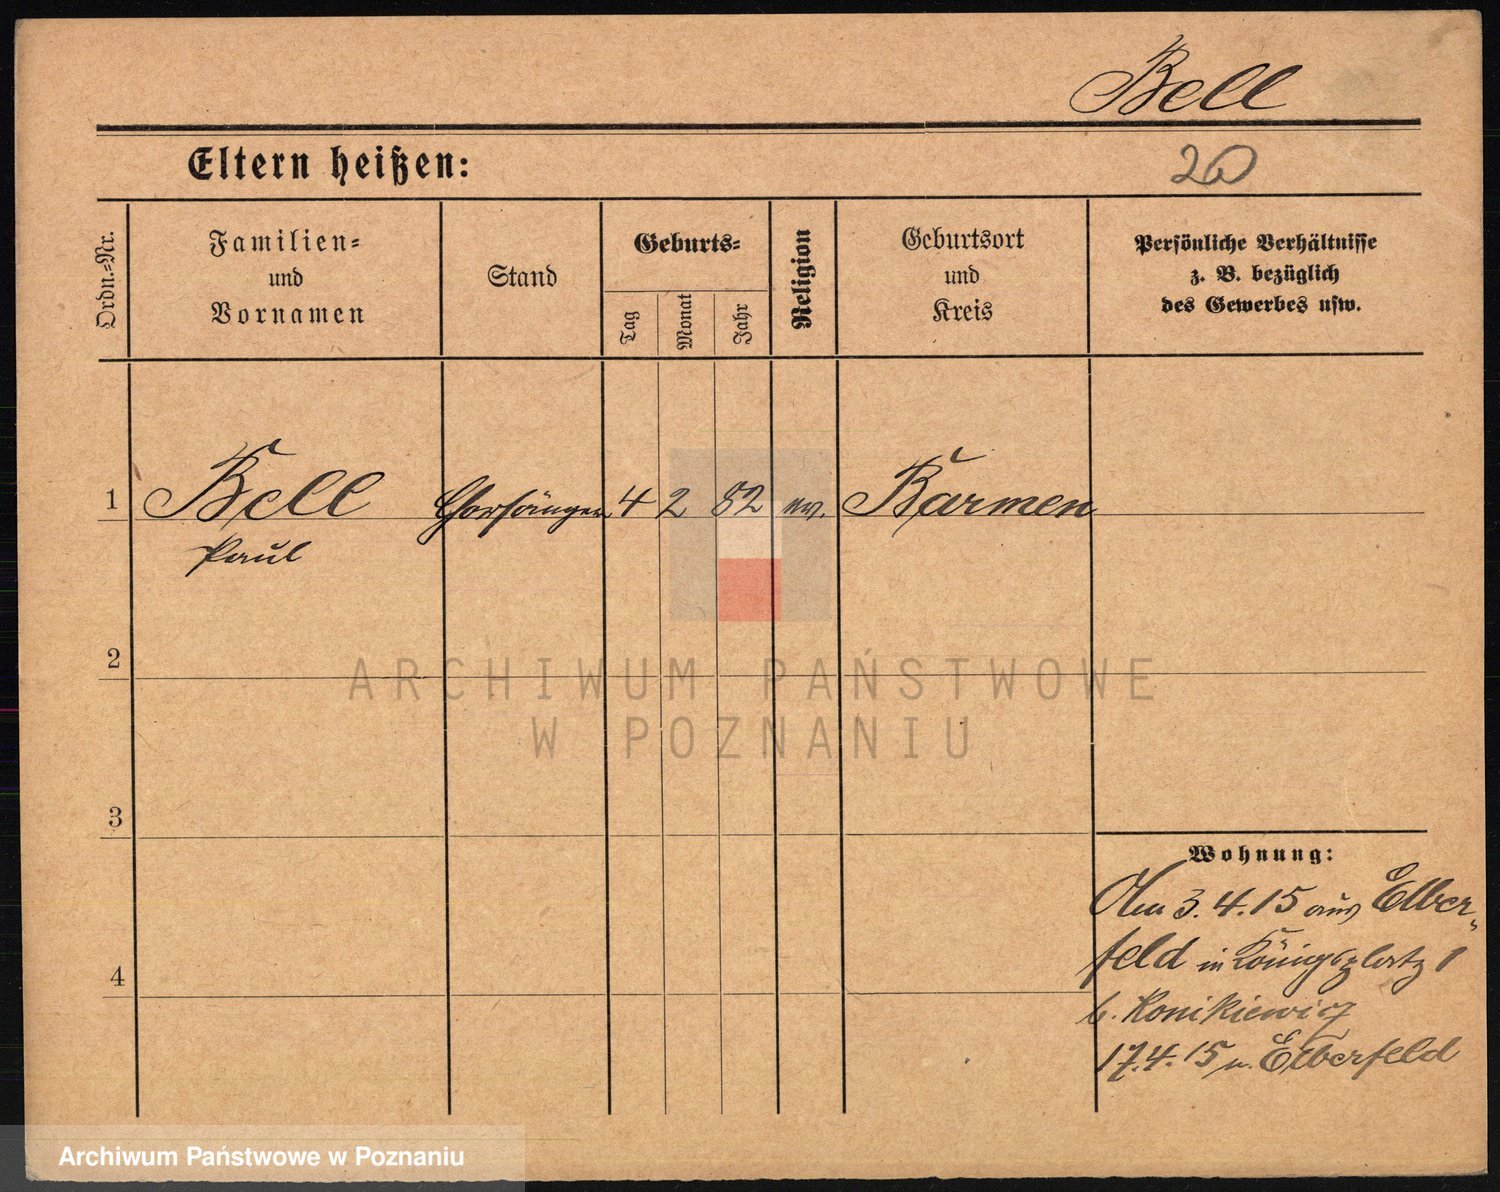 Bell
Eltern heißen:
20
Ordn.=Nr.
Familien=
und
Vornamen
Stand
Geburts=
Tag
Monat
Jahr
Religion
Geburtsort
und
Kreis
Persönliche Verhältnisse
z. B. bezüglich
des Gewerbes usw.
1 Bell Chorsänger 4 2 82 ev. Barmen
Paul
2
ARCHIWUM PAŃSTWOWE
W POZNANIU
3
Wohnung:
3.4.15 aus Elber=
feld in Königsplatz 1
4
b. Konikiewicz
17.4.15 n. Elberfeld
Archiwum Państwowe w Poznaniu